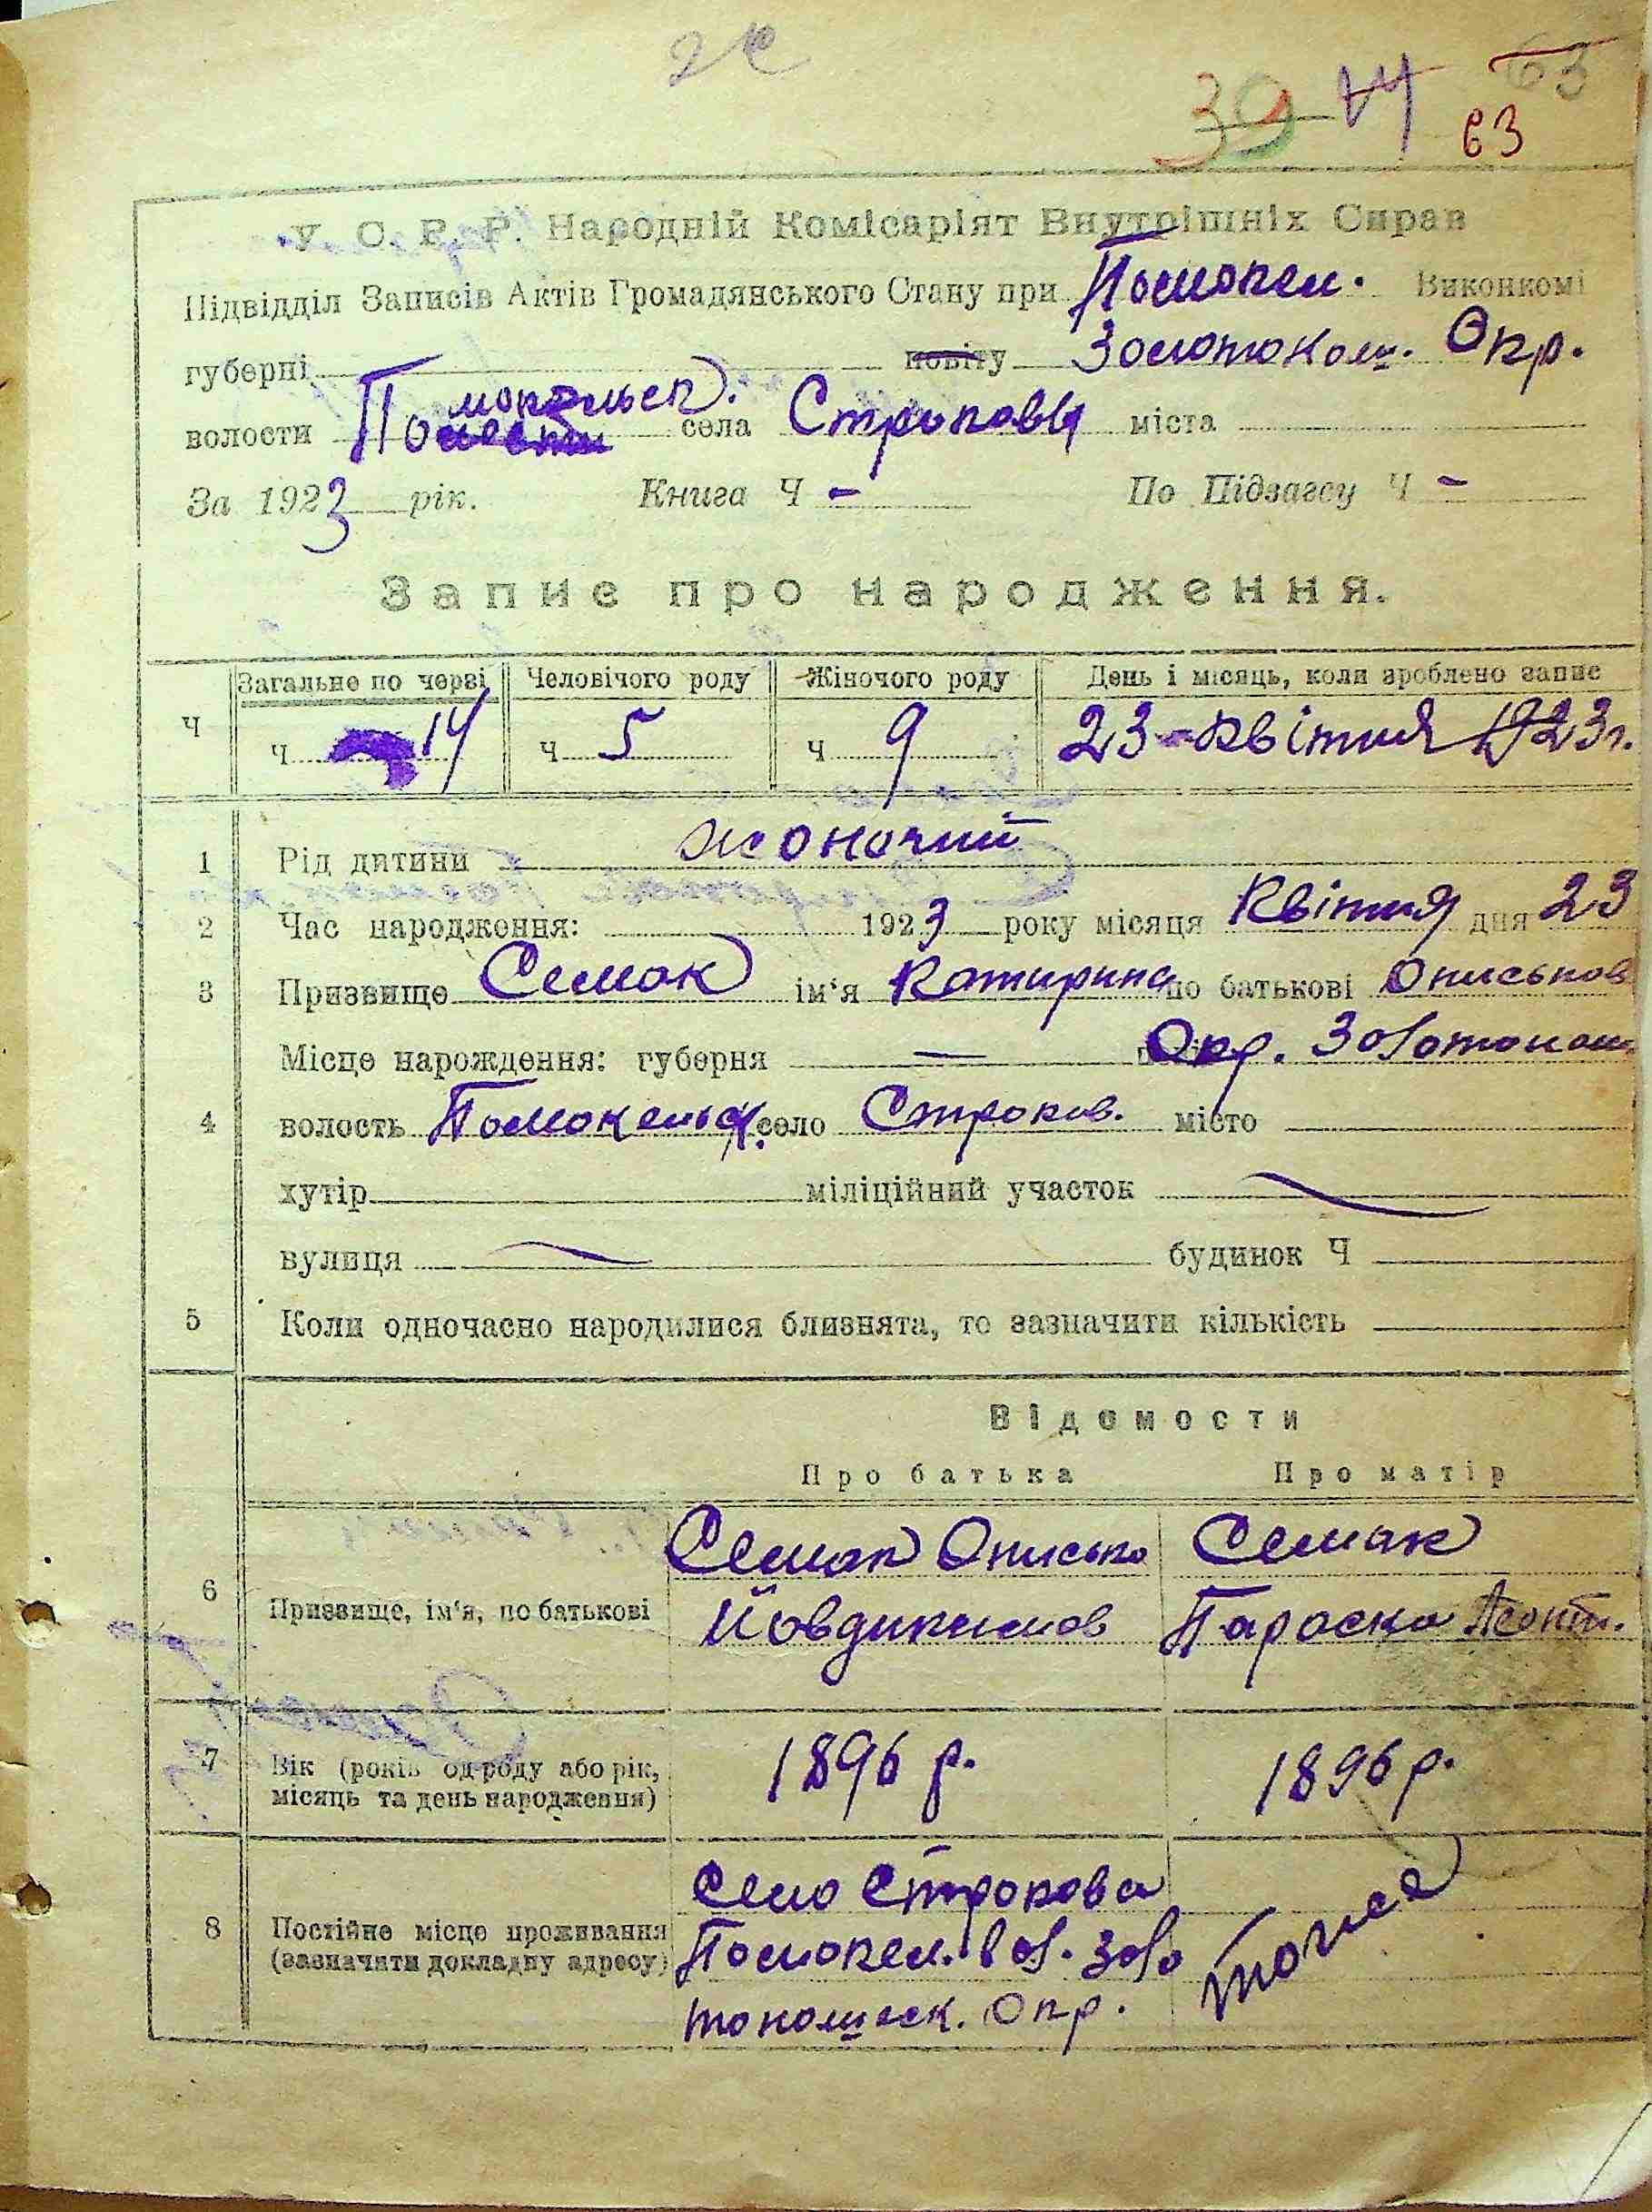 39 14 63
63
У. С. Р. Р. Народній Комісаріят Внутрішніх Справ
Підвідділ Записів Актів Громадянського Стану при Помокел. Виконкомі
губерні повіту Золотоном. Окр.
волости Помокельск. села Строкова міста
За 1923 рік. Книга Ч - По Підзагсу Ч -
Запис про народження.
Загальне по черзі Человічого роду Жіночого роду День і місяць, коли зроблено запис
Ч Ч 14 Ч 5 Ч 9 23 Квітня 1923 г.
1 Рід дитини жоночий
2 Час народження: 1923 року місяця Квітня дня 23
3 Призвище Семак ім'я Катирина по батькові Ониськов
Місце народження: губерня — Окр. Золотонош.
4 волость Помокельск. село Строков. місто
хутір міліційний участок
вулиця будинок Ч
5 Коли одночасно народилися близнята, то зазначити кількість
Відомости
Про батька Про матір
Семак Онисько Семак
6 Призвище, ім'я, по батькові Йовдикимов Параска Леонт.
7 Вік (років од роду або рік, місяць та день народження) 1896 р. 1896 р.
Село Строкова
8 Постійне місце проживання (зазначити докладну адресу) Помокел. вол. Золо тоже
тоношск. Окр.